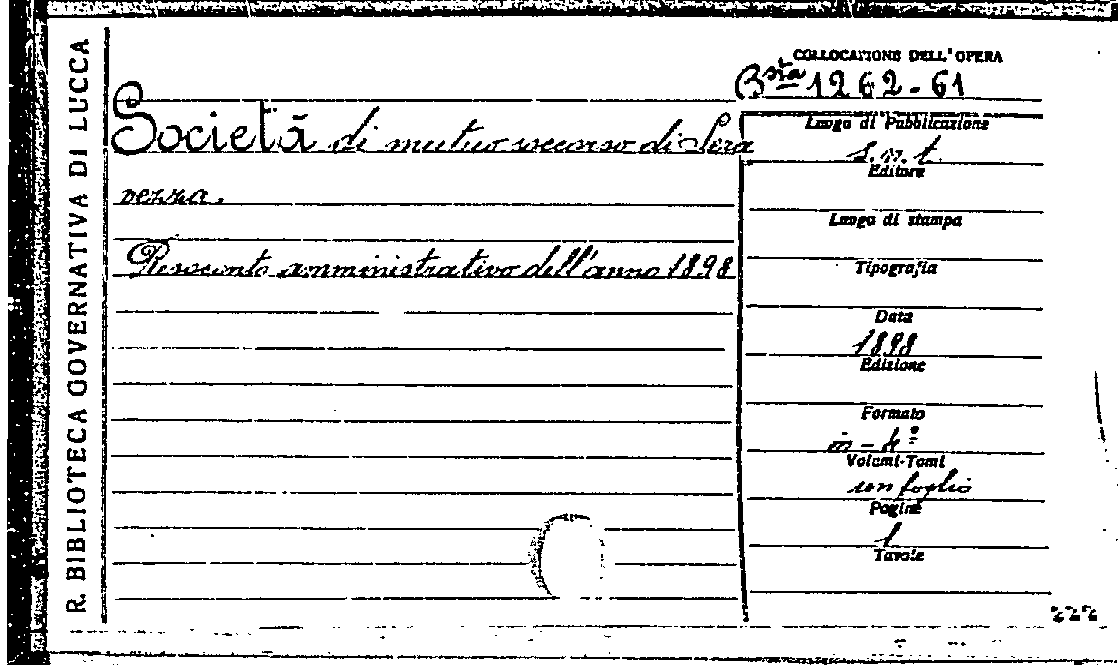 R. BIBLIOTECA GOVERNATIVA DI LUCCA
COLLOCAZIONE DELL'OPERA
Bsta 1262-61
Società di mutuo soccorso di Sera
vezza.
Resoconto amministrativo dell'anno 1898
Luogo di Pubblicazione
s. n. t.
Editore
Luogo di stampa
Tipografia
Data
1898
Edizione
Formato
in-4°
Volumi-Tomi
un foglio
Pagine
1
Tavole
222